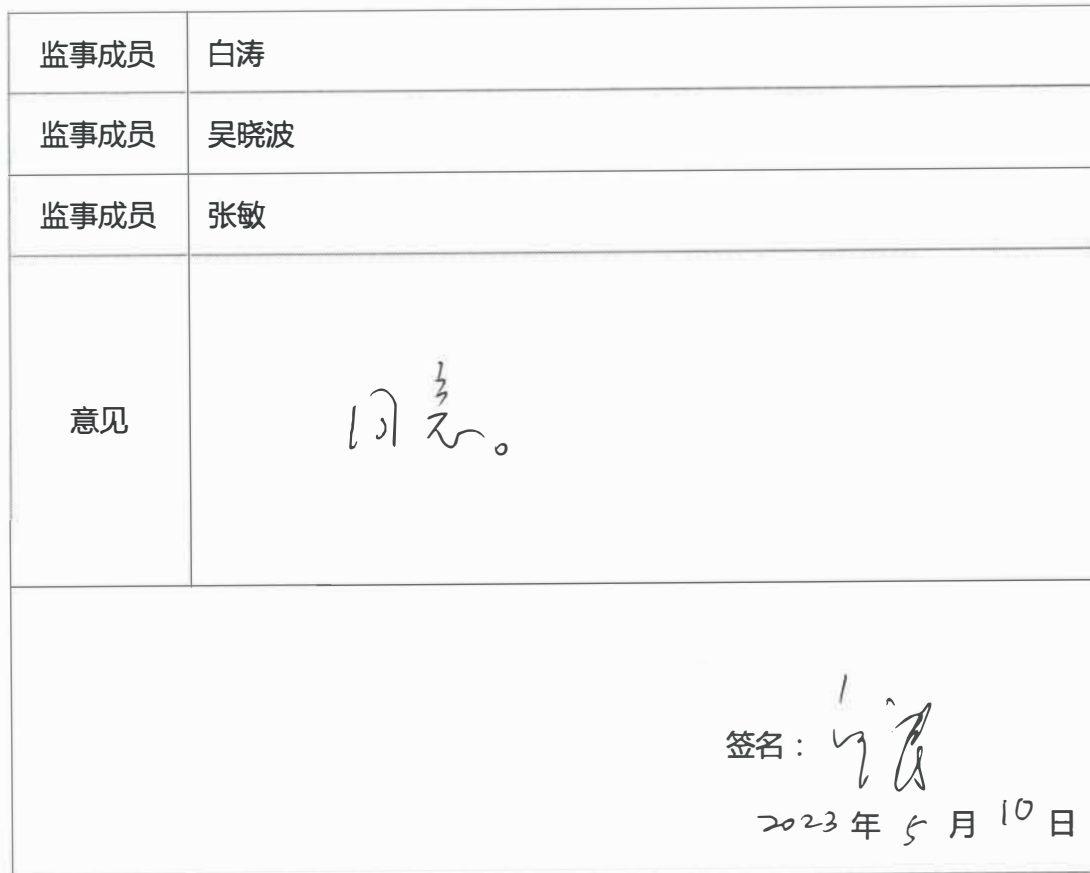 监事成员 白涛
监事成员 吴晓波
监事成员 张敏
意见 同意。
签名：
2023 年 5 月 10 日